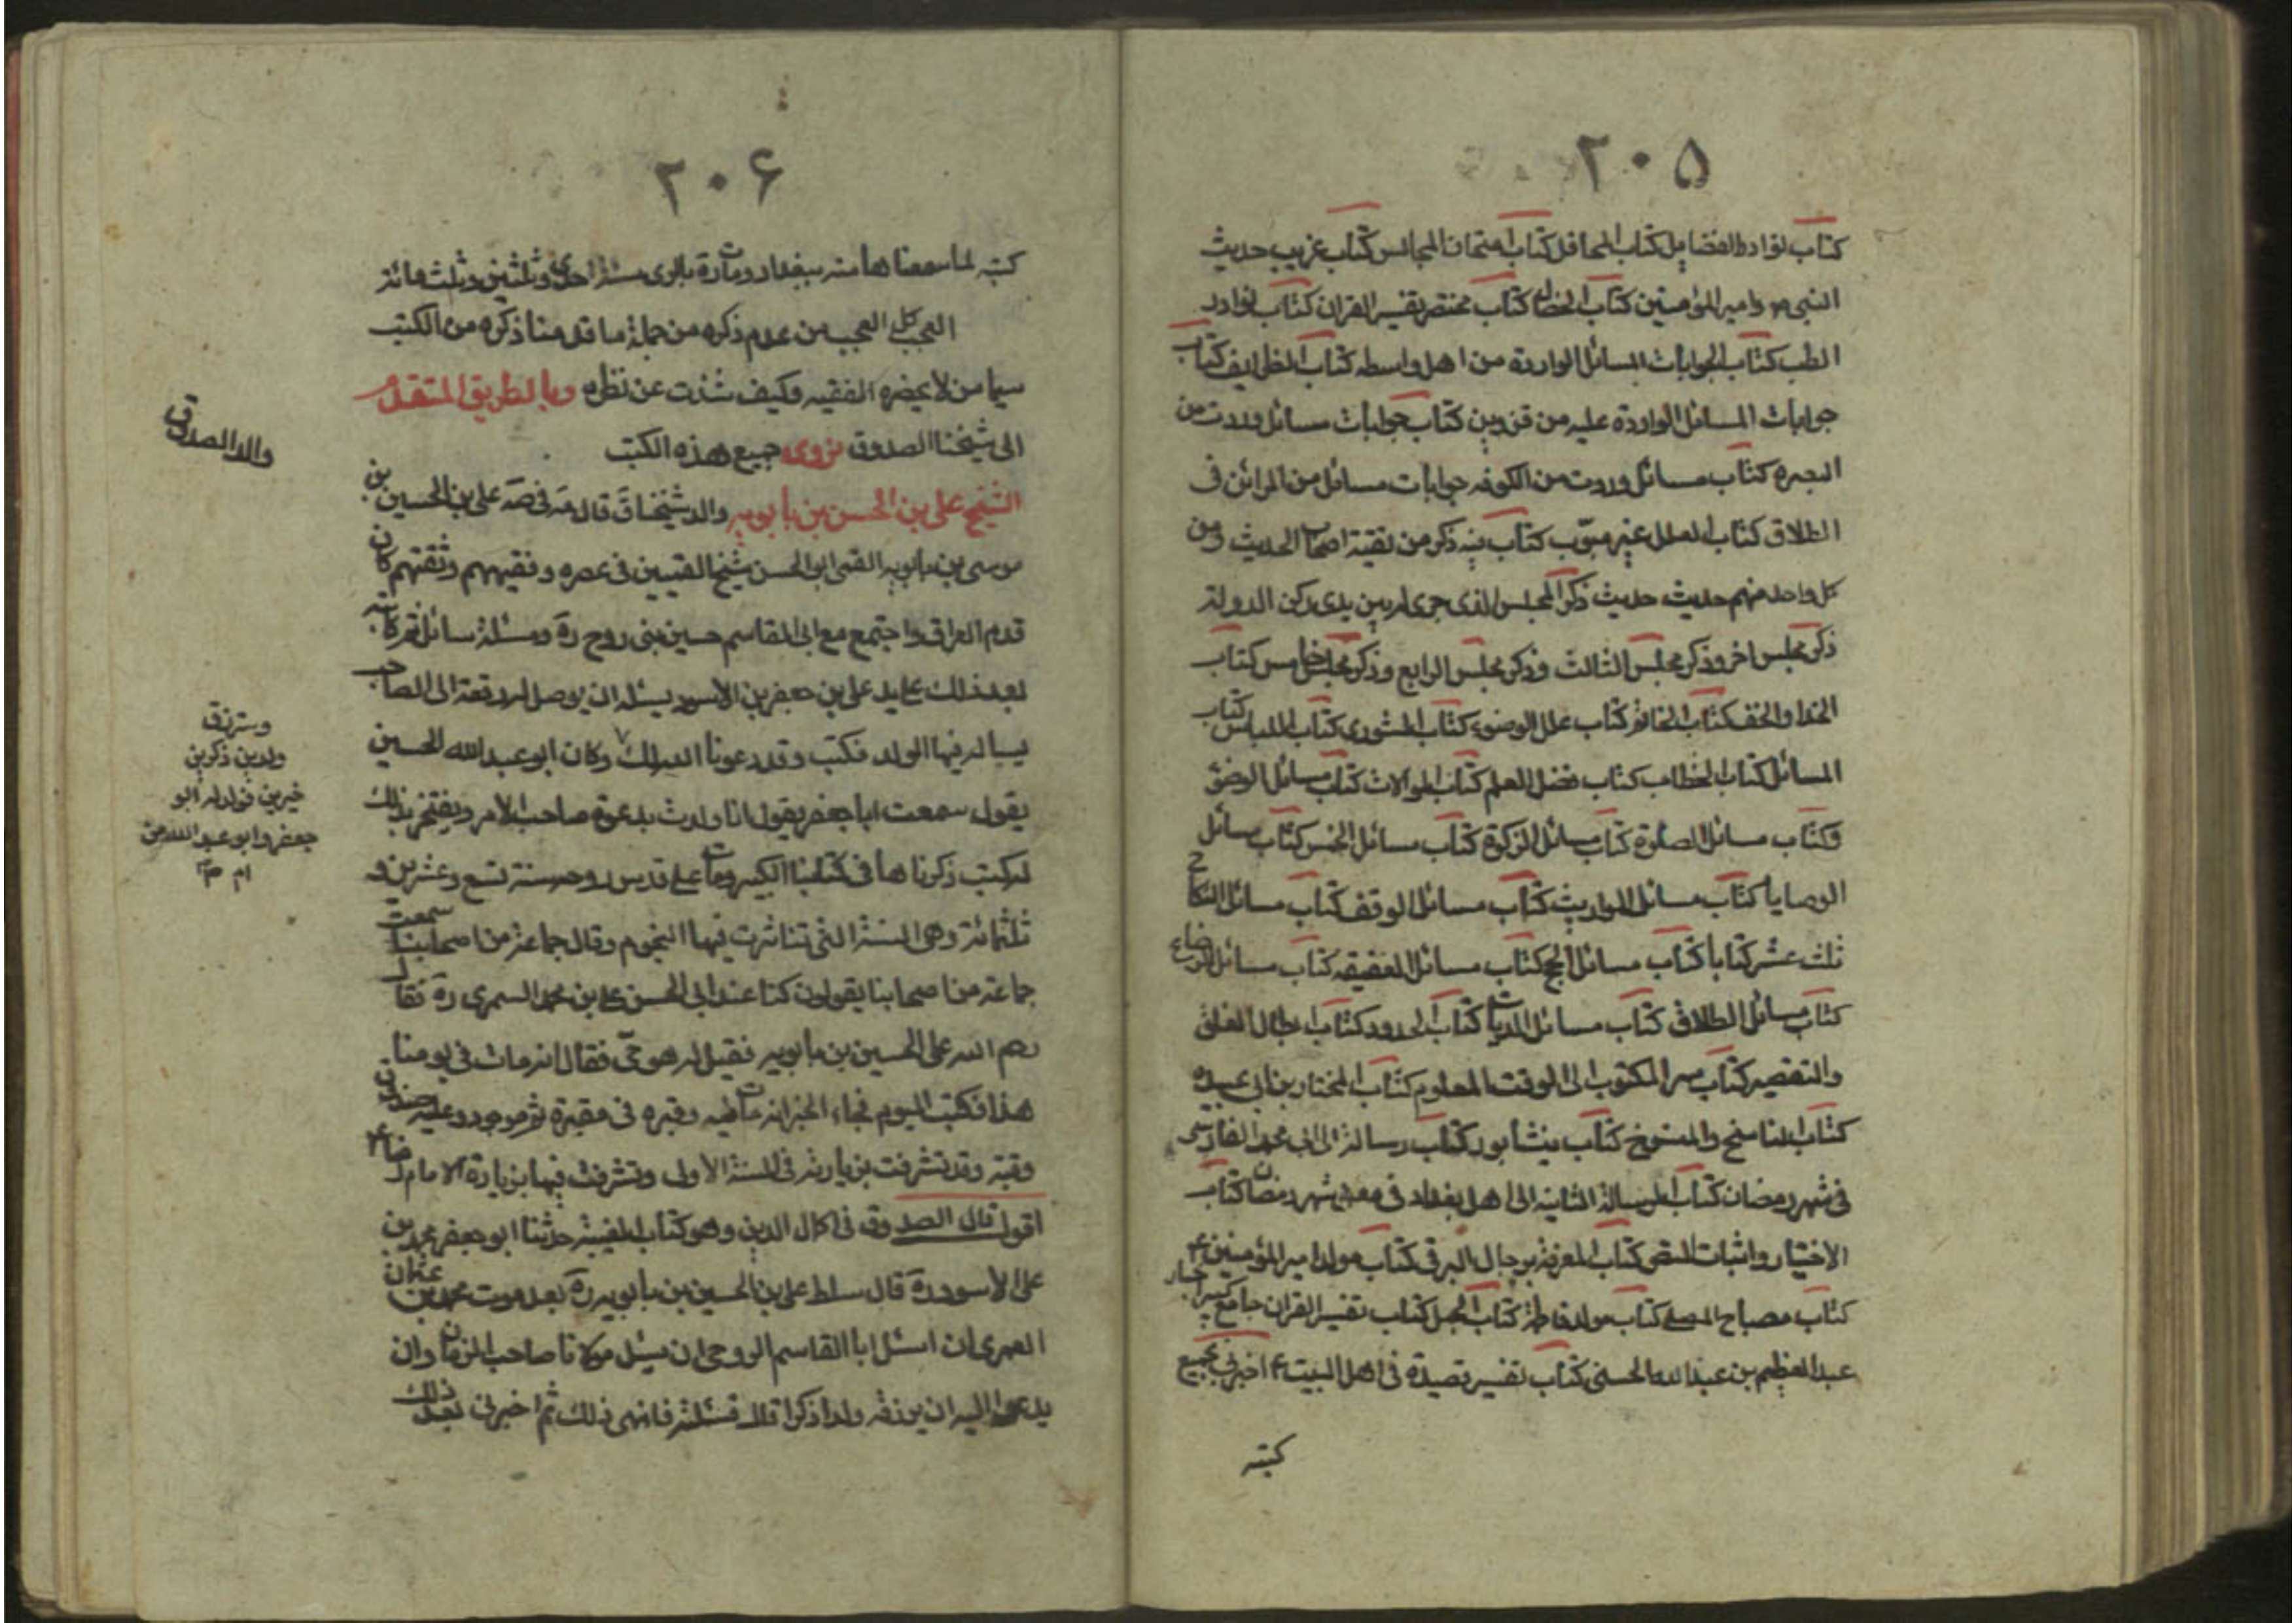 ٢٠۵
كتاب نوادر الفضايل كتاب المحافل كتاب امتحان المجالس كتاب غريب حديث
النبي ص وامير المؤمنين كتاب الخصال كتاب مختصر تفسير القران كتاب نوادر
الطب كتاب الجوابات المسائل الواردة من اهل واسطه كتاب الظرايف كتاب
جوابات المسائل الواردة عليه من قزوين كتاب جوابات مسائل وردت من
البصره كتاب مسائل وردت من الكوفه جوابات مسائل من المدائن فى
الطلاق كتاب العلل غير مبوّب كتاب فيه ذكر من لقيته اصحاب الحديث ومن
كل واحد منهم حديث حديث ذكر المجلس الذى جرى له بين يدى ركن الدولة
ذكر مجلس اخر وذكر مجلس الثالث وذكر مجلس الرابع وذكر مجلس خامس كتاب
الخدا والخف كتاب الخاتم كتاب علل الوضوء كتاب الشورى كتاب اللباس كتاب
المسائل كتاب الخطاب كتاب فضل العلم كتاب الموالات كتاب مسائل الوضوء
وكتاب مسائل الصلوة كتاب مسائل الزكوة كتاب مسائل الخمس كتاب مسائل
الوصايا كتاب مسائل المواريث كتاب مسائل الوقف كتاب مسائل النكاح
ثلث عشر كتابا كتاب مسائل الحج كتاب مسائل العقيقه كتاب مسائل الرضاع
كتاب مسائل الطلاق كتاب مسائل الديات كتاب الحدود كتاب ابطال الغلق
والتقصير كتاب سر المكتوب الى الوقت المعلوم كتاب المختار بن ابى عبيده
كتاب الناسخ والمنسوخ كتاب نيشابور كتاب رسالة الى ابى محمد الفارسى
فى شهر رمضان كتاب الرسالة الثانيه الى اهل بغداد فى معنى شهر رمضان كتاب
الاختيار واثبات النص كتاب المعرفة برجال البرقى كتاب مولد امير المؤمنين ع
كتاب مصباح المصلى كتاب مولد فاطمة كتاب الجمل كتاب تفسير القران جامع كبير اخبار
عبد العظيم بن عبد الله الحسنى كتاب تفسير قصيدة فى اهل البيت ع اخبرنى بجميع
كتبه
٢٠۶
كتبه لما سمعناها منه ببغداد ومات ره بالرى سنة احدى وثلثين وثلث مائة
العجب كل العجب من عدم ذكره من جملة ما قدمنا ذكره من الكتب
سيما من لا يحضره الفقيه وكيف شذت عن نظره وبالطريق المتقدم
الى شيخنا الصدوق نروى جميع هذه الكتب
الشيخ على بن الحسن بن بابويه والد شيخناق قال مه فى صه على بن الحسين بن
موسى بن بابويه القمى ابو الحسن شيخ القميين فى عصره وفقيههم وثقتهم كان
قدم العراق واجتمع مع ابى القاسم حسين بنى روح ره ومسئلة سائل ثم كاتبه
بعد ذلك على يد على بن جعفر بن الاسود يسئله ان يوصل له رقعة الى الصاحب
يساله فيها الولد فكتب وقد دعونا الله لك وكان ابو عبد الله الحسين
يقول سمعت ابا جعفر يقول انا ولدت بدعوة صاحب الامر ويفتخر بذلك
له كتب ذكرناها فى كتابنا الكبير ومات على قدس روحه سنة تسع وعشرين و
ثلثمائة وهى السنة التى تناثرت فيها النجوم وقال جماعة من اصحابنا سمعت
جماعة من اصحابنا يقولون كنا عند ابى الحسن على بن محمد السمرى ره فقال
رحم الله على الحسين بن بابويه فقيل له هو حىّ فقال انه مات فى يومنا
هذا فكتب اليوم فجاء الخبر انه مات فيه وقبره فى مقبرة قم موجود وعليه صندوق
وقبة وقد تشرفت بزيارته فى السنة الاولى وتشرفت فيها بزيارة الامام رضا ع
اقول قال الصدوق فى اكمال الدين وهو كتاب الغيبة حدثنا ابو جعفر محمد بن
على الاسود ره قال سالط على بن الحسين بن بابويه ره بعد موت محمد بن عثمان
العمرى ان اسئل ابا القاسم الروحى ان يسئل مولانا صاحب الزمان وان
يدعوا اليه ان يرزقه ولدا ذكرا قال فسئلته فانهى ذلك ثم اخبرنى بعد ذلك
والد الصدوق
وسترزق
ولدين ذكرين
خيرين فولد له ابو
جعفر وابو عبد الله من
ام